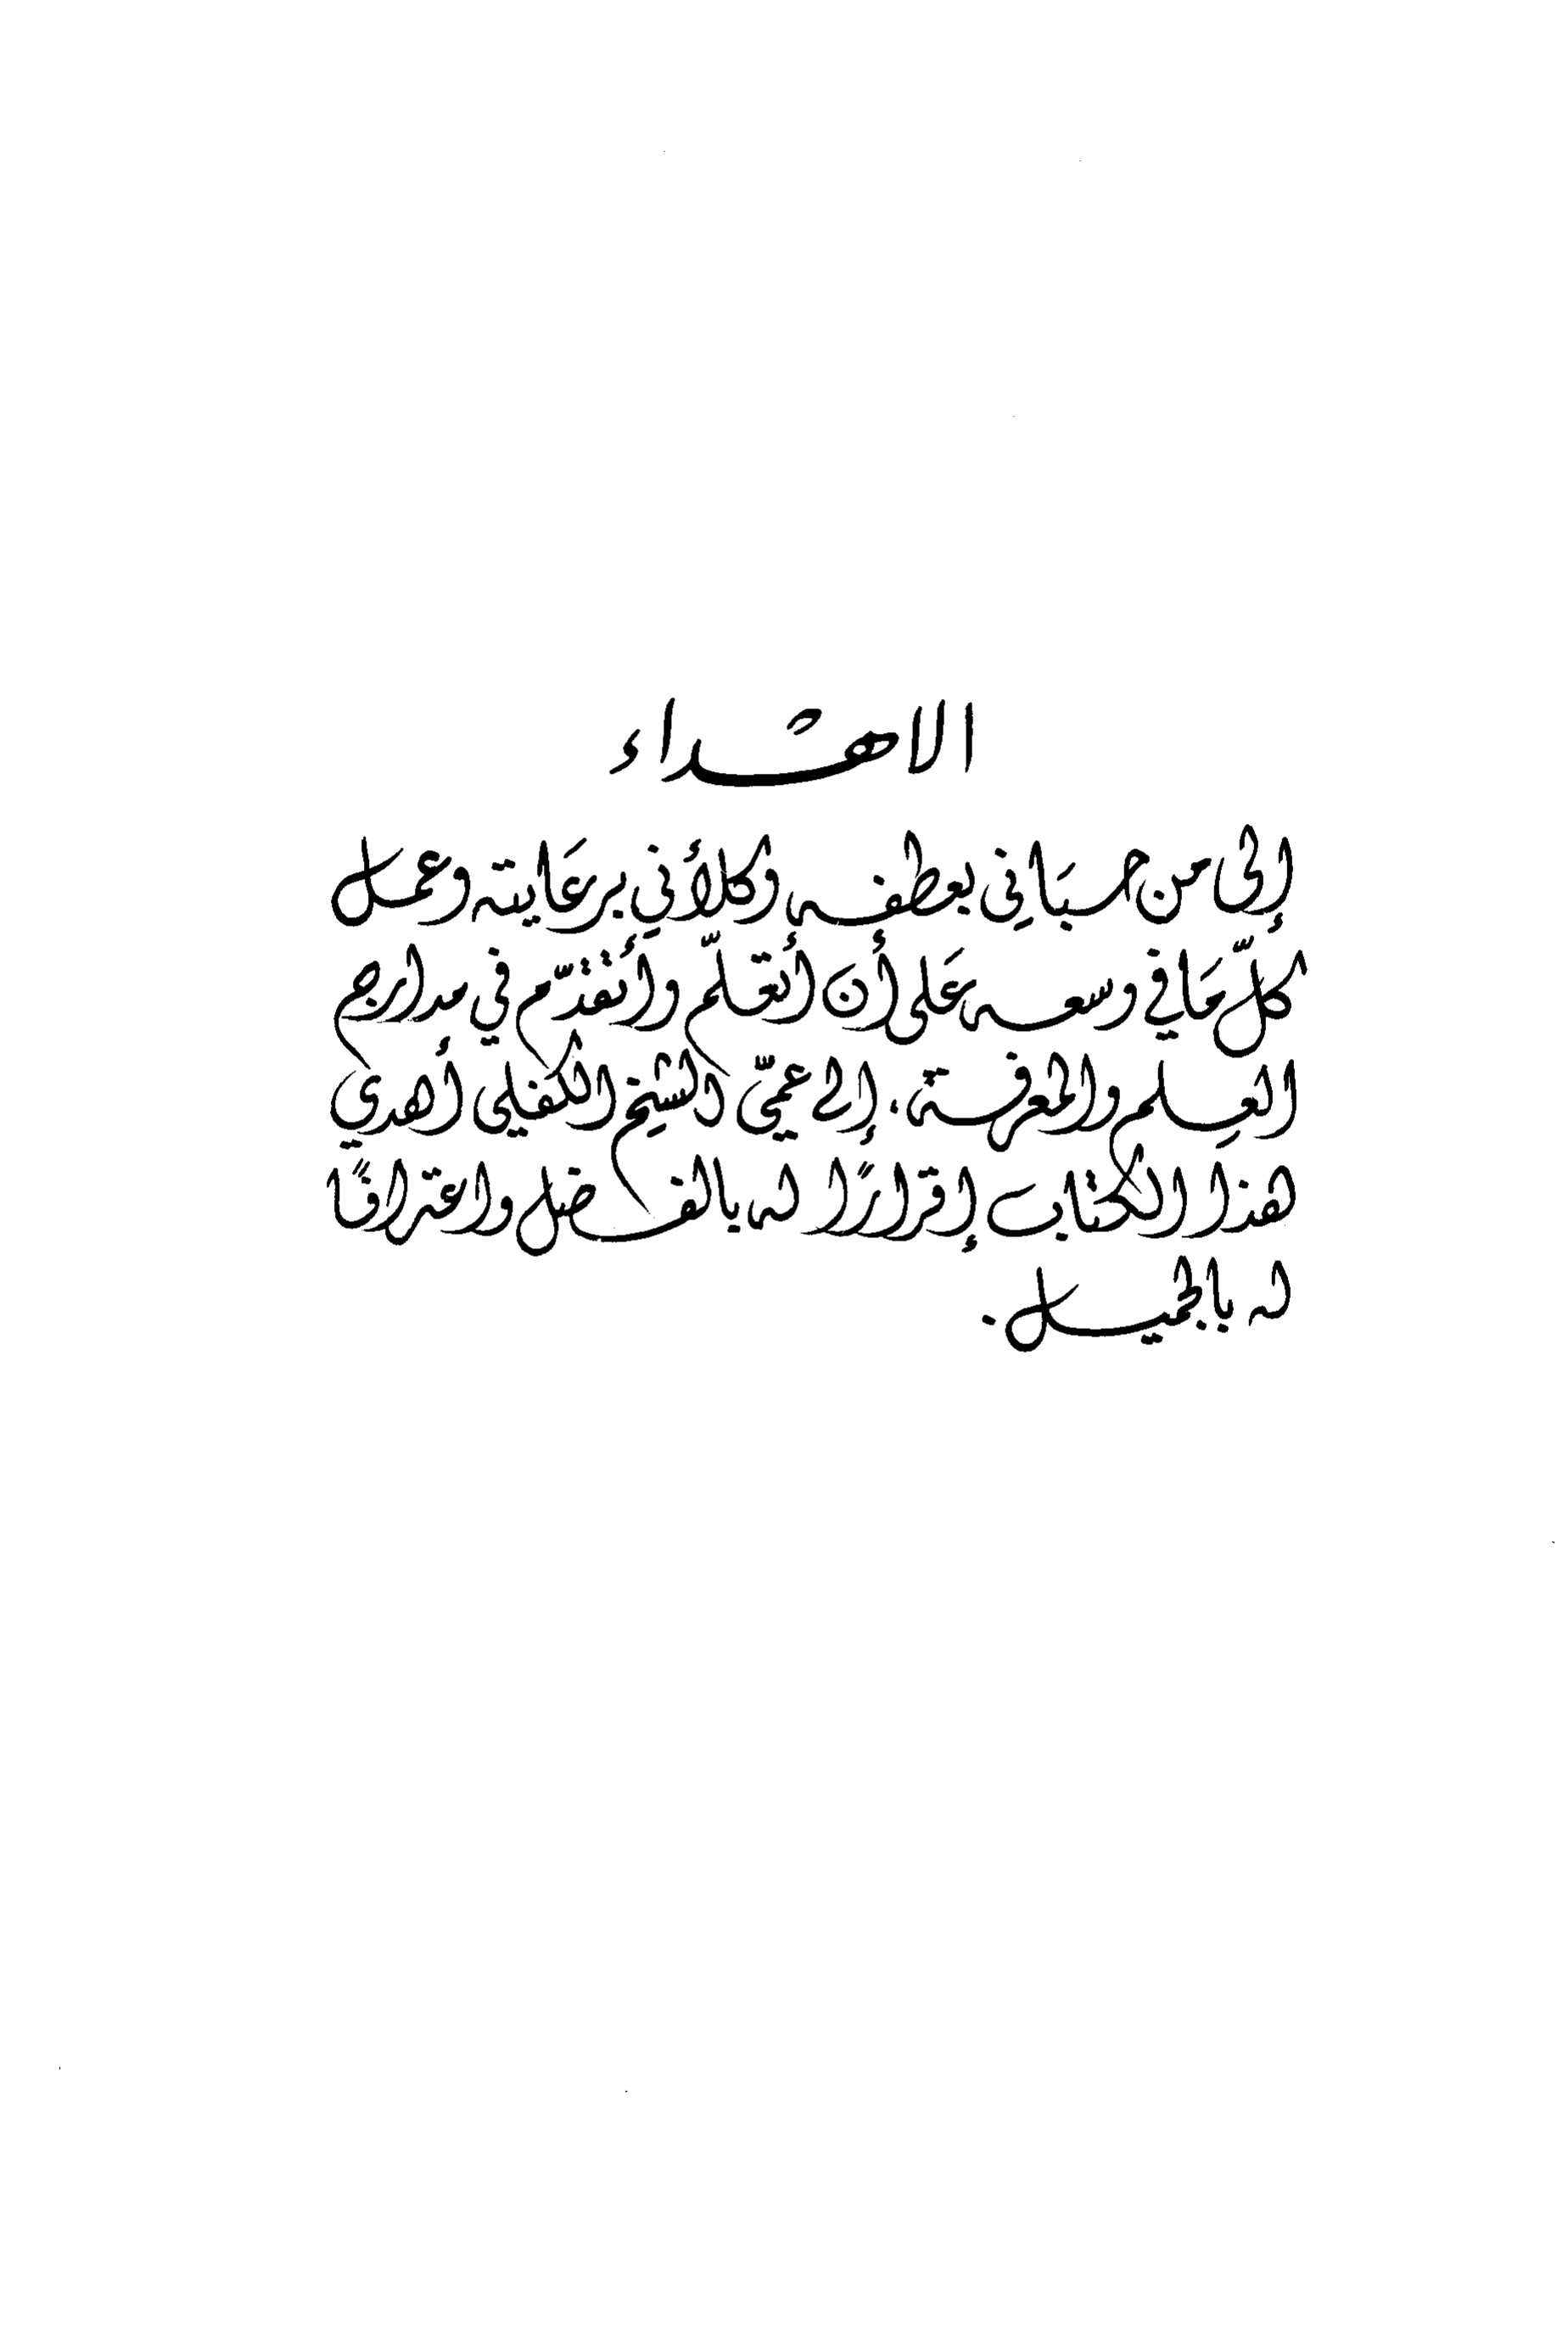 الاهداء
إلى من حبَاني بعطفه وكلأَني برعَايته وعمل
كلّ مَا في وسعه عَلى أن أتعَلّم وأَتقدّم في مدارج
العِلم والمعرفة . إلى عمّي الشيخ الكفلي أهدي
هذا الكتاب إقرارًا له بالفضل واعترافًا
له بالجميل .